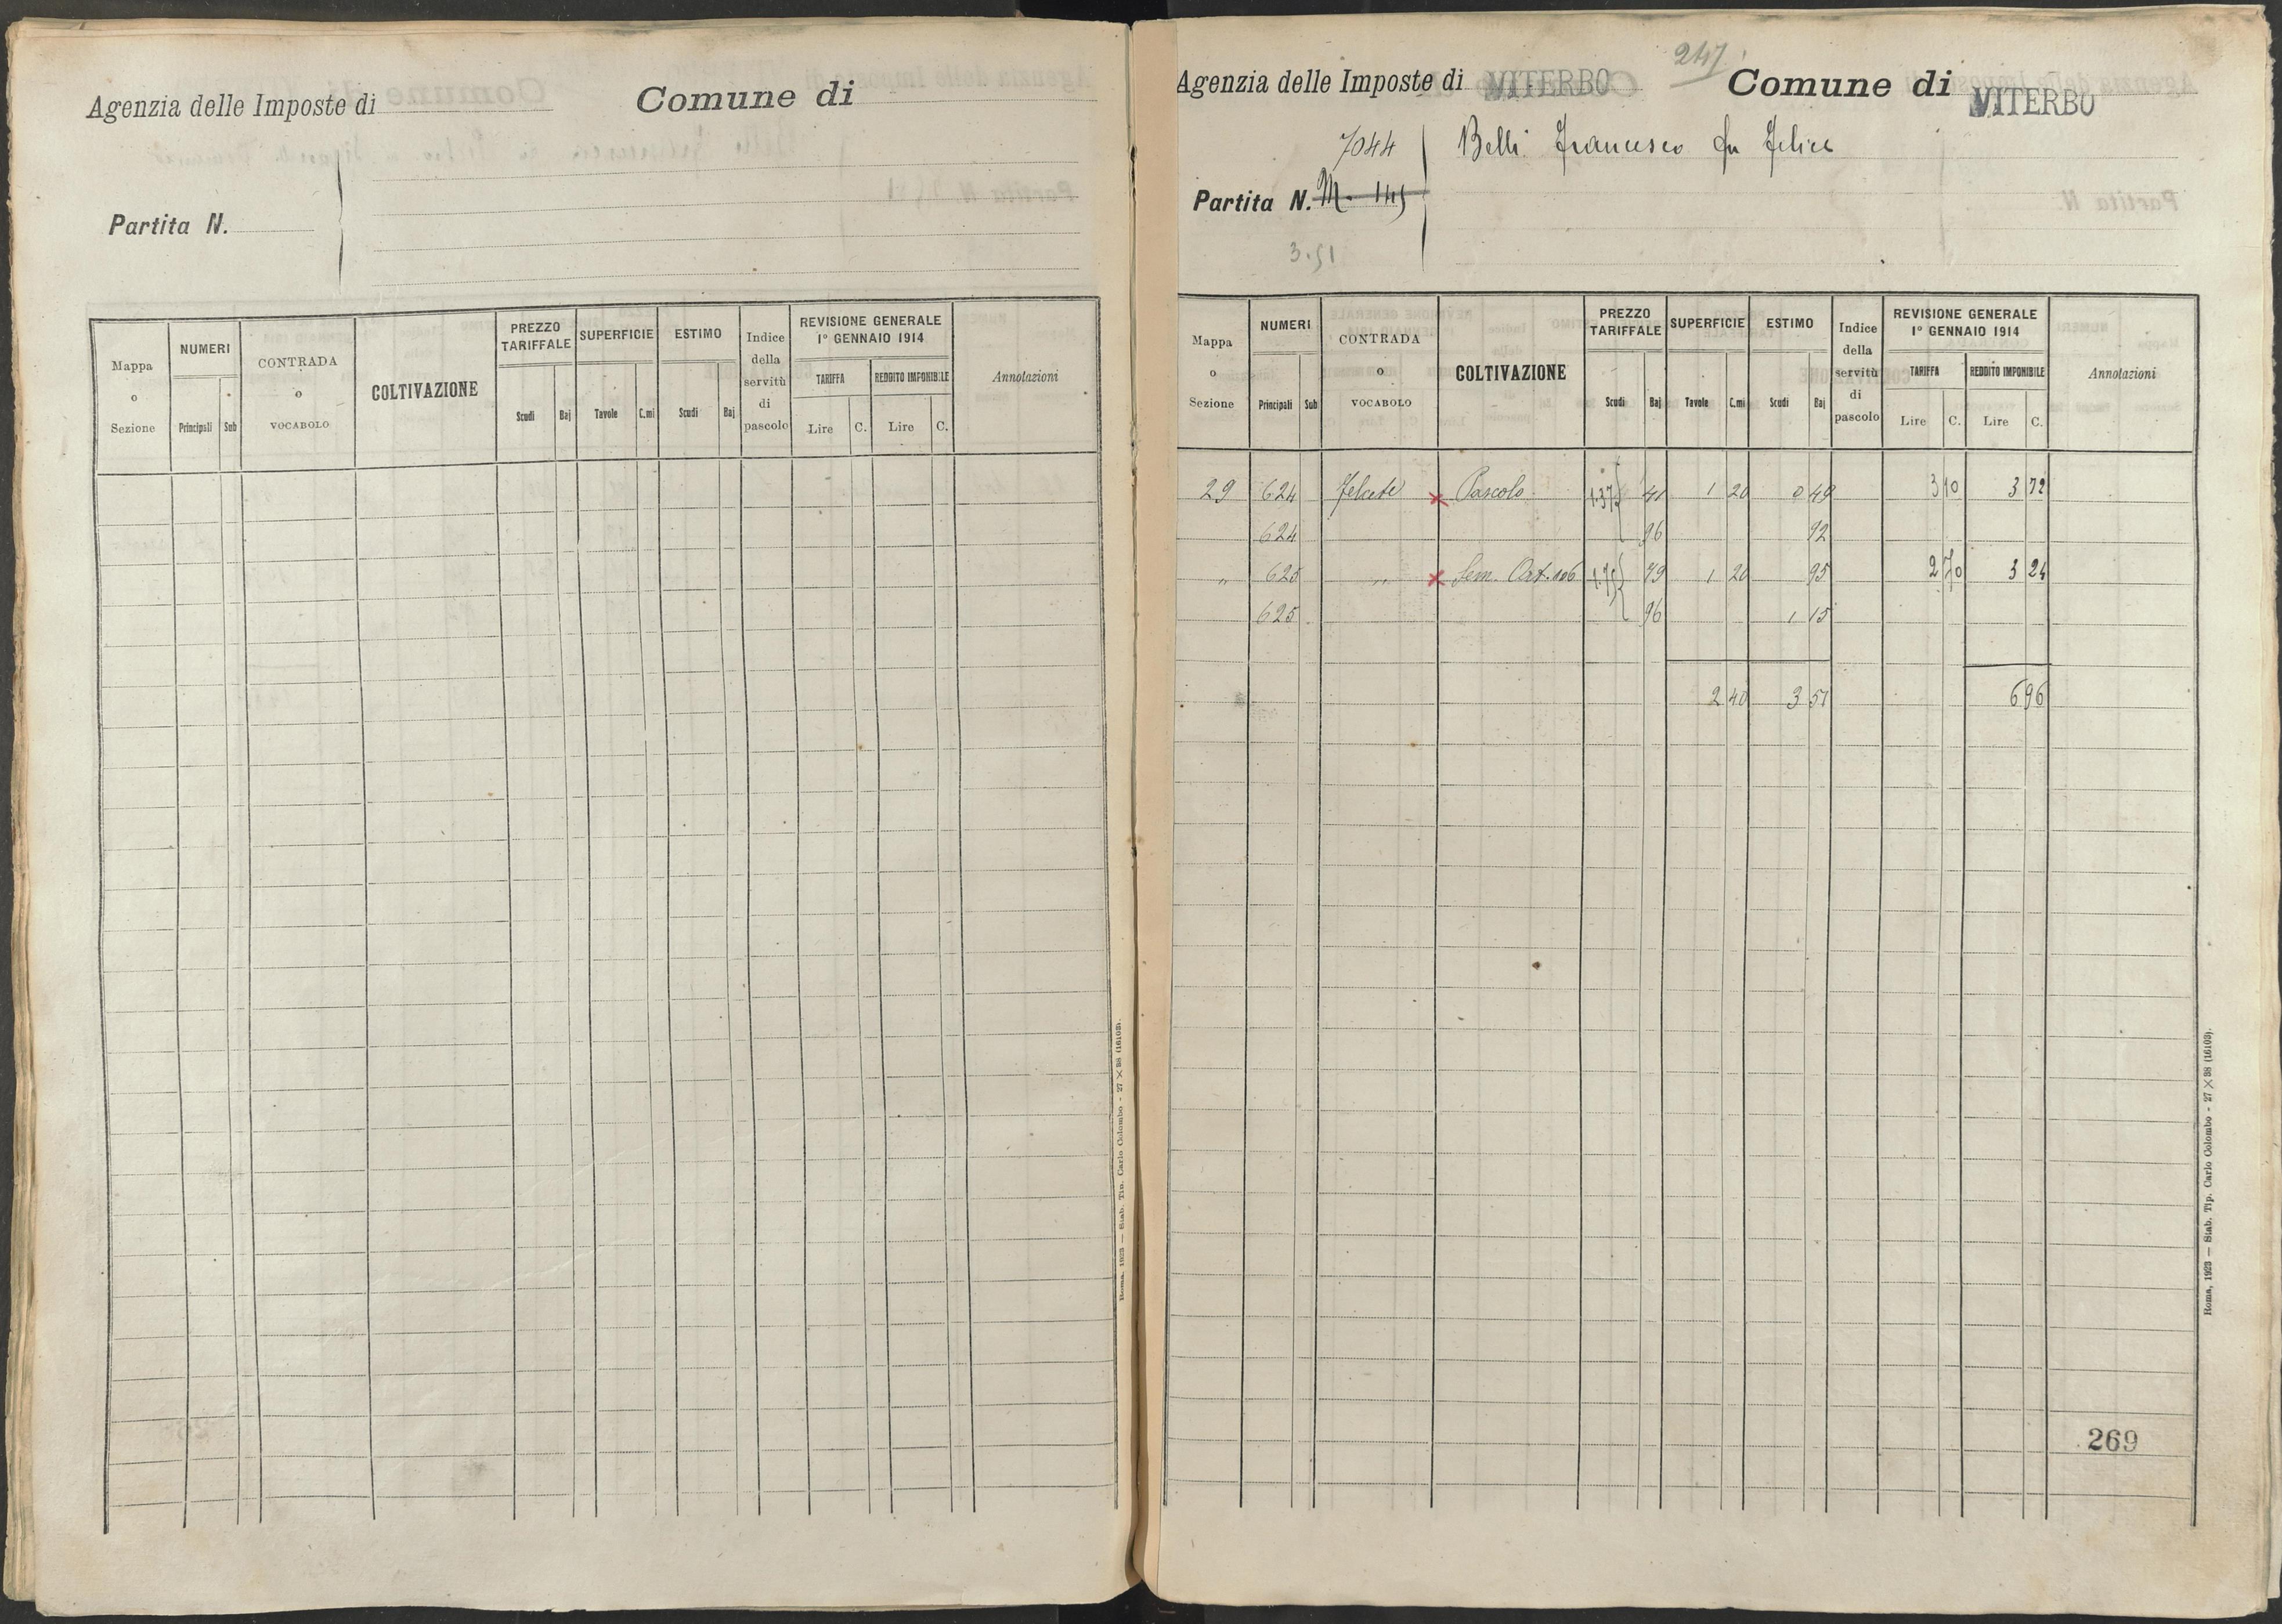 Agenzia delle Imposte di Comune di
Partita N.
Mappa o Sezione NUMERI Principali Sub CONTRADA o VOCABOLO COLTIVAZIONE PREZZO TARIFFALE Scudi Baj SUPERFICIE Tavole C.mi ESTIMO Scudi Baj Indice della servitù di pascolo REVISIONE GENERALE 1° GENNAIO 1914 TARIFFA Lire C. REDDITO IMPONIBILE Lire C. Annotazioni
Roma, 1923 — Stab. Tip. Carlo Colombo - 27 × 38 (16103).
247
Agenzia delle Imposte di VITERBO Comune di VITERBO
7044 Belli Francesco fu Felice
Partita N. M. 145
3.51
Mappa o Sezione NUMERI Principali Sub CONTRADA o VOCABOLO COLTIVAZIONE PREZZO TARIFFALE Scudi Baj SUPERFICIE Tavole C.mi ESTIMO Scudi Baj Indice della servitù di pascolo REVISIONE GENERALE 1° GENNAIO 1914 TARIFFA Lire C. REDDITO IMPONIBILE Lire C. Annotazioni
29 624 Felcete Pascolo 1.37 41 1 20 0 49 3 10 3 72
624 96 92
" 625 " Sem. 79 1 20 95 2 70 3 24
625 96 1 15
2 40 3 51 6 96
269
Roma, 1923 — Stab. Tip. Carlo Colombo - 27 × 38 (16103).